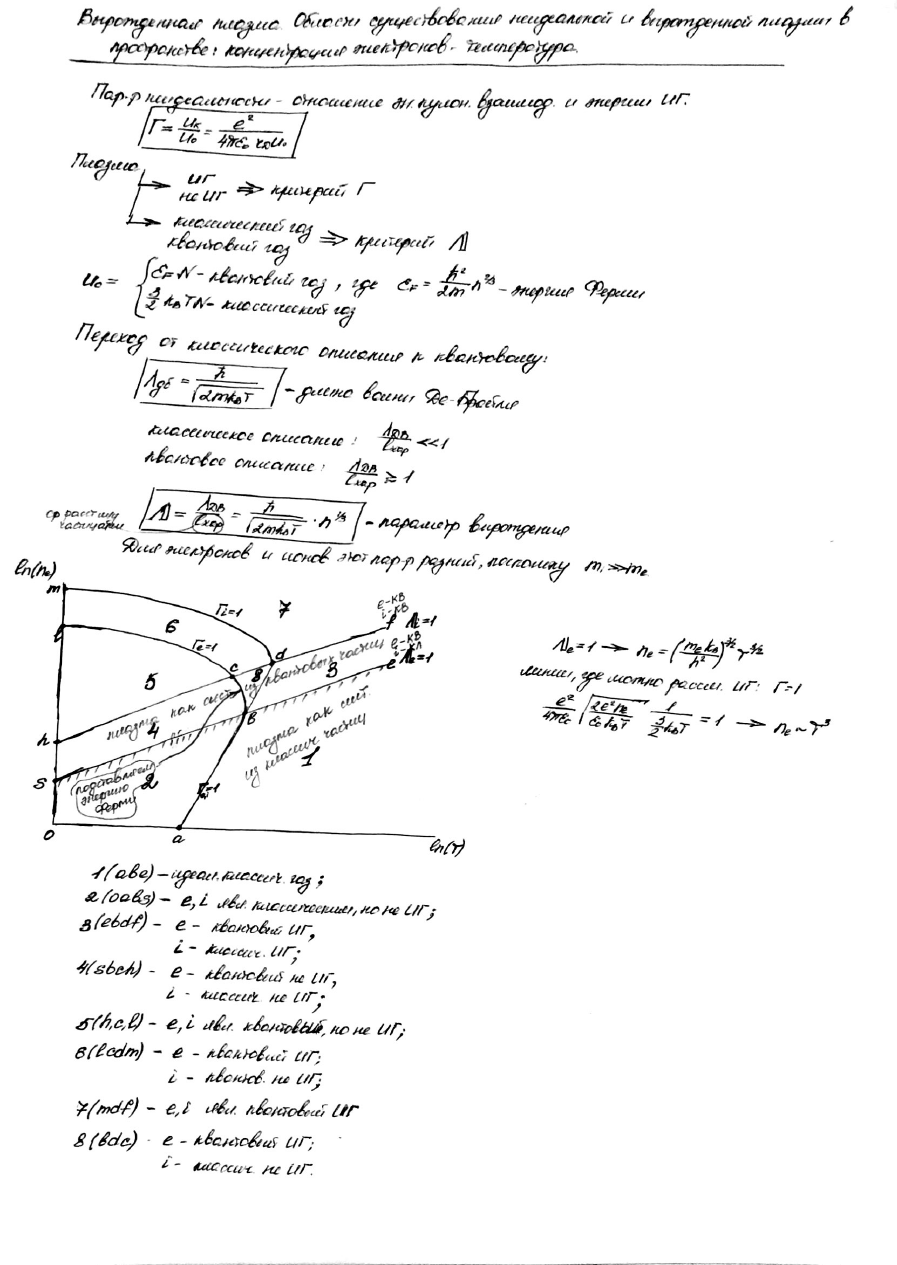 Вырожденная плазма. Области существования неидеальной и вырожденной плазмы в
пространстве: концентрация электронов - температура.
Пар-р неидеальности - отношение эн. кулон. взаимод. и энергии ИГ.
Г = uк/u₀ = e²/(4πε₀ r₀u₀)
Плазма
ИГ
не ИГ ⇒ критерий Г
классический газ
квантовый газ ⇒ критерий Λ
u₀ = { ε_F N - квантовый газ, где ε_F = ħ²/2m n^(2/3) - энергия Ферми
3/2 k_B T N - классический газ
Переход от классического описания к квантовому:
λдб = ħ/√(2mk_BT) - длина волны Де-Бройля
классическое описание: λдв/lхар <<1
квантовое описание: λдв/lхар ≥ 1
ср расст. м/у
частицами
Λ = λдв/lхар = ħ/√(2mk_BT) · n^(1/3) - параметр вырождения
Для электронов и ионов этот пар-р разный, поскольку mᵢ >> mₑ
ln(nₑ)
m
Гi=1
7
e-кв
i-кв
f Λi=1
6
l
Гe=1
e-кв
i-кл
e Λe=1
c
d
8
3
5
плазма как сист. из квантовых частиц
h
4
b
плазма как сист.
из классич частиц
1
s
подставляем
энергию
Ферми
2
=1
0
a
ln(T)
Λe=1 → nₑ = (mₑk_B/ħ²)^(3/2) T^(3/2)
линии, где можно рассм. ИГ: Г=1
e²/4πε₀ √(2e²nₑ/ε₀k_BT) 1/(3/2 k_BT) = 1 → nₑ ~ T³
1(abe) - идеал. классич. газ;
2(oabs) - e, i явл. классическими, но не ИГ;
3(ebdf) - e - квантовый ИГ,
i - классич. ИГ;
4(sbch) - e - квантовый не ИГ,
i - классич. не ИГ;
5(h,c,l) - e, i явл. квантовый, но не ИГ;
6(lcdm) - e - квантовый ИГ;
i - квантов. не ИГ;
7(mdf) - e, i явл. квантовый ИГ
8(bdc) - e - квантовый ИГ;
i - классич. не ИГ.